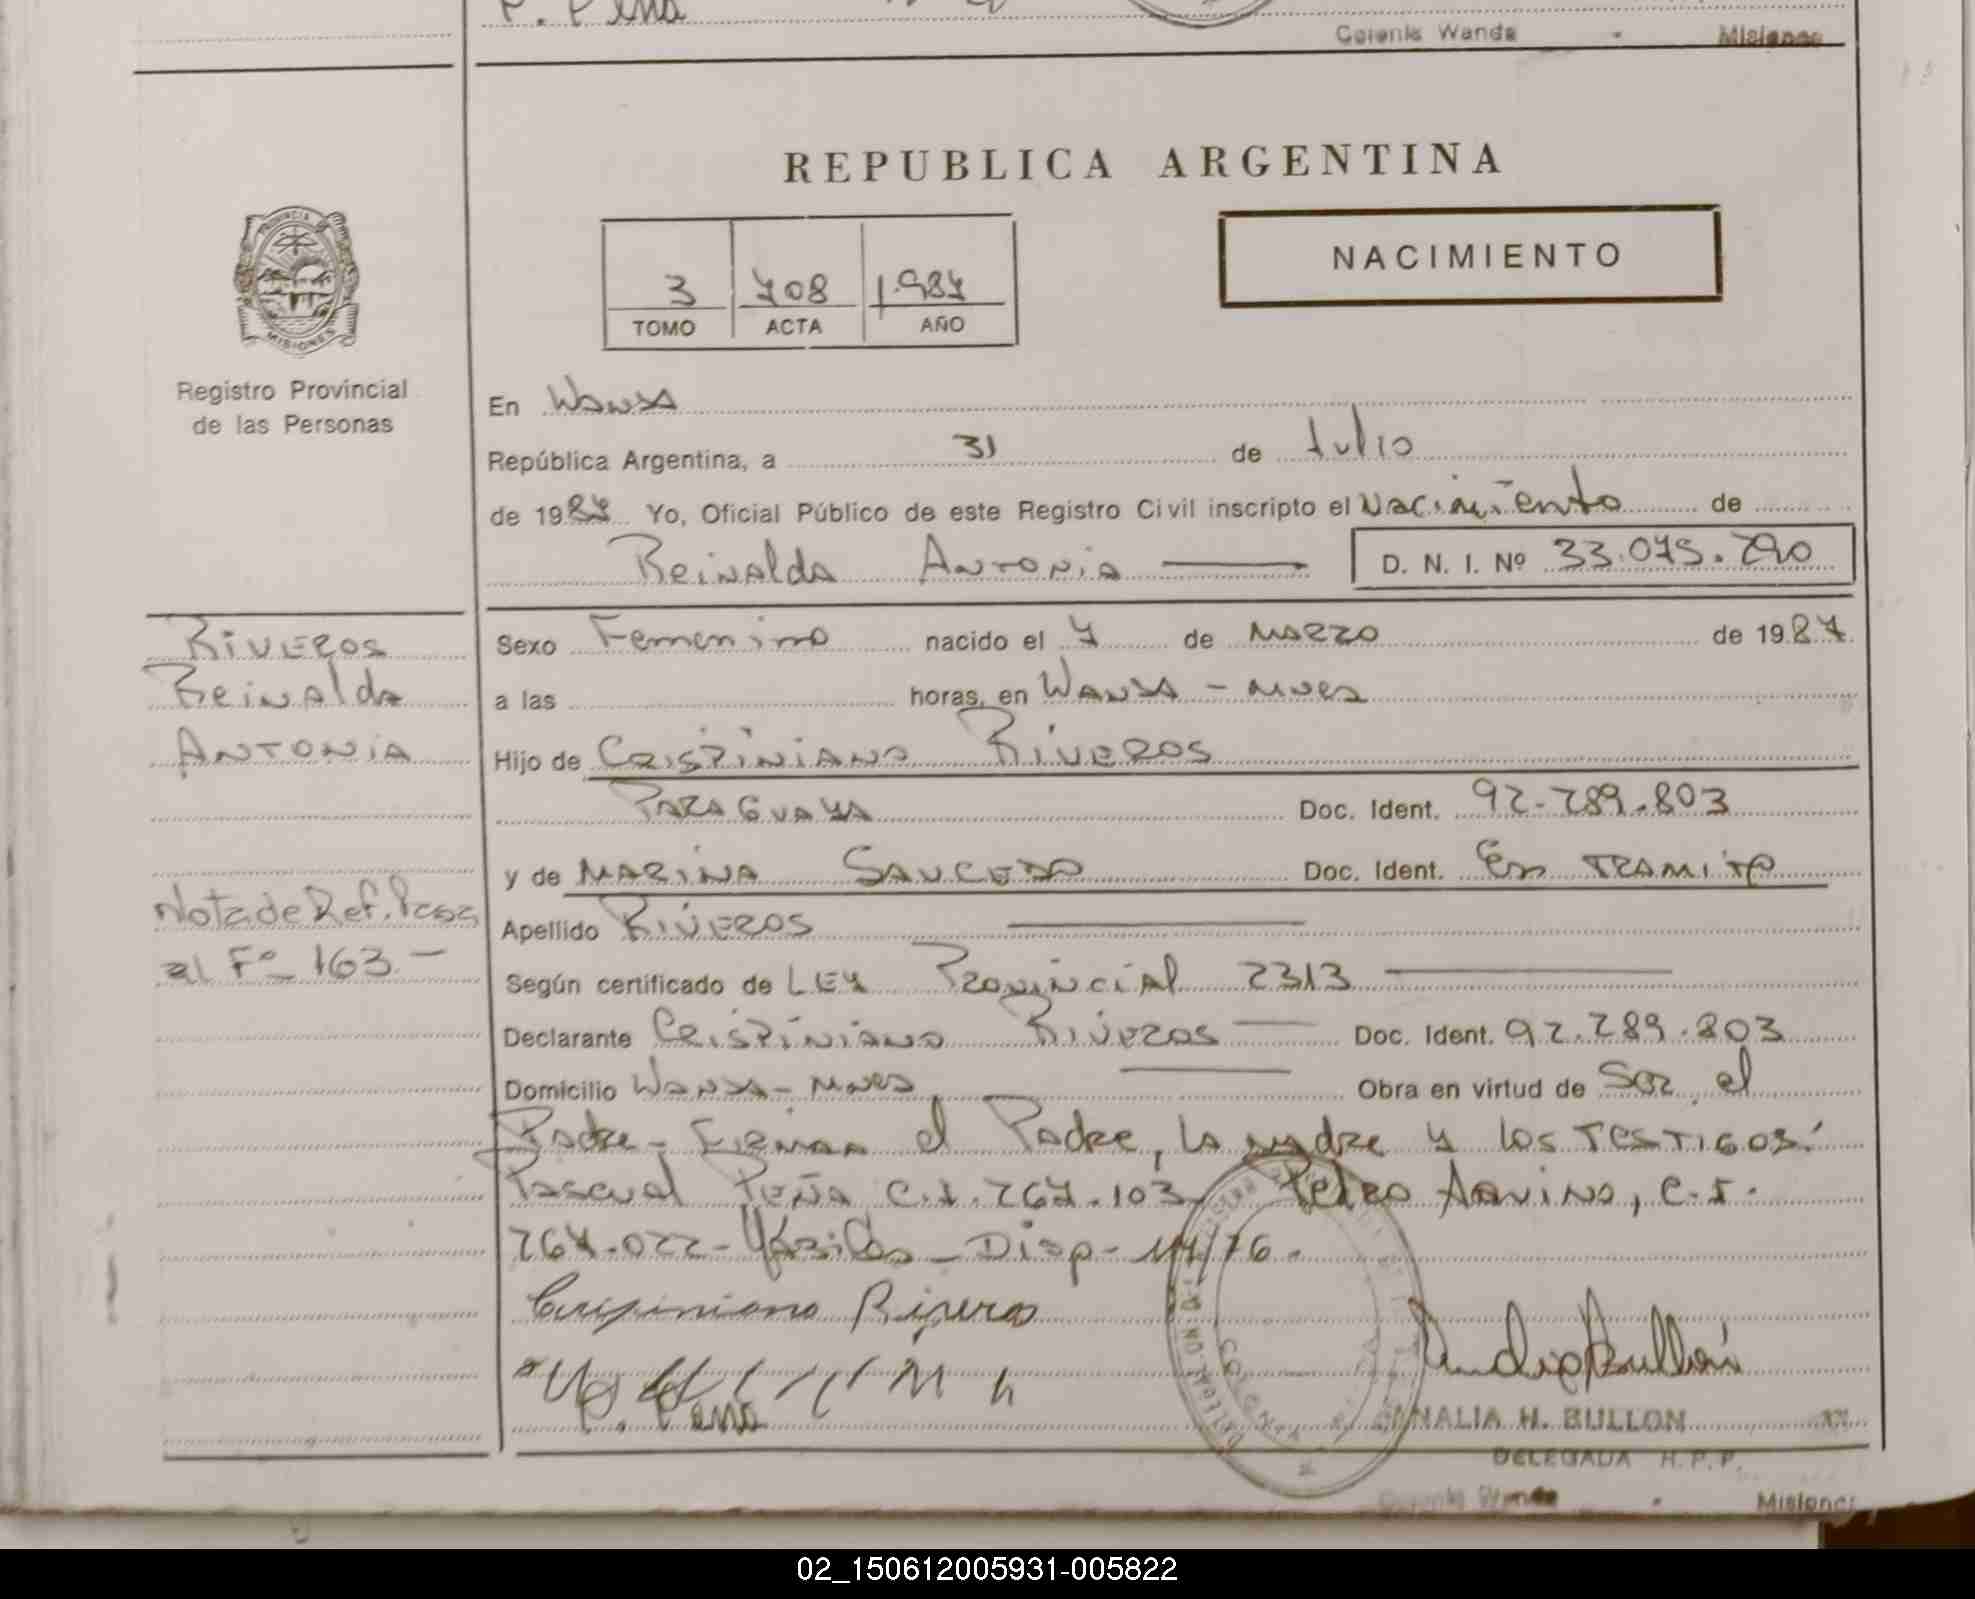 P. Peña
Colonia Wanda - Misiones
REPUBLICA ARGENTINA
PROVINCIA DE
MISIONES
Registro Provincial
de las Personas
3 708 1.987
TOMO ACTA AÑO
NACIMIENTO
En Wanda
República Argentina, a 31 de Julio
de 1987 Yo, Oficial Público de este Registro Civil inscripto el Nacimiento de
Reinalda Antonia D. N. I. Nº 33.075.290
RIVEROS
Reinalda
ANTONIA
Nota de Ref. Pcas
al Fº 163.-
Sexo Femenino nacido el 7 de MARZO de 1987.
a las horas, en Wanda - Mnes
Hijo de CRISPINIANO RIVEROS
PARAGUAYA Doc. Ident. 92.289.803
y de MARINA SAUCEDO Doc. Ident. En TRAMITE
Apellido RIVEROS
Según certificado de LEY Provincial 2313
Declarante CRISPINIANO RIVEROS Doc. Ident. 92.289.803
Domicilio Wanda - Mnes Obra en virtud de Ser el
Padre - Firman el Padre, la madre y los TESTIGOS:
Pascual Peña C.I. 267.103 Pedro Aquino, C.I.
267.022 - Disp - 14/76.
Crispiniano Riveros
P. Peña
ANALIA H. BULLON
DELEGADA R.P.P.
Colonia Wanda - Misiones
02_150612005931-005822